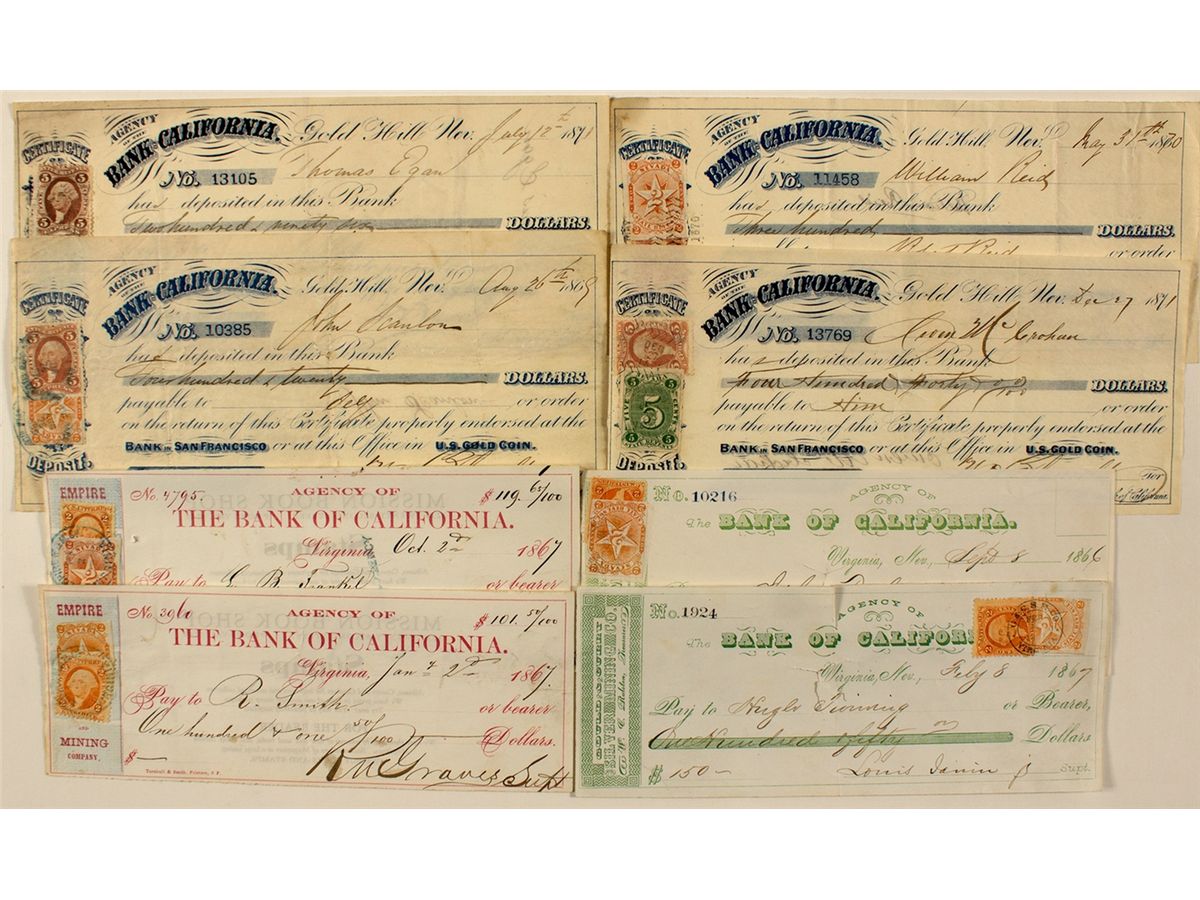 CERTIFICATE
OF
AGENCY
OF THE
BANK OF CALIFORNIA.
Gold Hill, Nev. July 12th 1871
No. 13105
Thomas Egan
has deposited in this Bank
Two hundred & ninety six DOLLARS.
CERTIFICATE
OF
AGENCY
OF THE
BANK OF CALIFORNIA.
Gold Hill, Nev. May 31th 1870
No. 11458
William Reid
has deposited in this Bank
Three hundred DOLLARS.
Reid or order
CERTIFICATE
OF
AGENCY
OF THE
BANK OF CALIFORNIA.
Gold Hill, Nev. Aug 26th 1869
No. 10385
John Scanlon
has deposited in this Bank
Four hundred & twenty DOLLARS
payable to Self or order
on the return of this Certificate properly endorsed at the
BANK IN SAN FRANCISCO or at this Office in U.S. GOLD COIN.
DEPOSIT.
CERTIFICATE
OF
AGENCY
OF THE
BANK OF CALIFORNIA.
Gold Hill, Nev. Dec 27 1871
No. 13769
has deposited in this Bank
Four Hundred, Forty 00/100 DOLLARS
payable to him or order
on the return of this Certificate properly endorsed at the
BANK IN SAN FRANCISCO or at this Office in U.S. GOLD COIN.
DEPOSIT.
For
EMPIRE
No. 4795.
AGENCY OF
$119. 65/100
THE BANK OF CALIFORNIA.
Virginia, Oct. 2d 1867
Pay to G. B. Frankl or bearer
No. 10216
AGENCY OF
The BANK OF CALIFORNIA.
Virginia, Nev, Sept 8 1866
EMPIRE
AND
MINING
COMPANY.
No. 3960
AGENCY OF
$101. 50/100
THE BANK OF CALIFORNIA.
Virginia, Jany 2d 1867.
Pay to R. Smith. or bearer
One hundred & one 50/100 Dollars.
$
Turnbull & Smith, Printers, S.F.
Supt
SILVER MINING CO.
No. 1924
AGENCY OF
The BANK OF CALIFOR
Virginia, Nev, Feby 8 1867
Pay to Hugh Twining or Bearer,
One Hundred fifty Dollars
$150 Louis Janin Jr Supt.